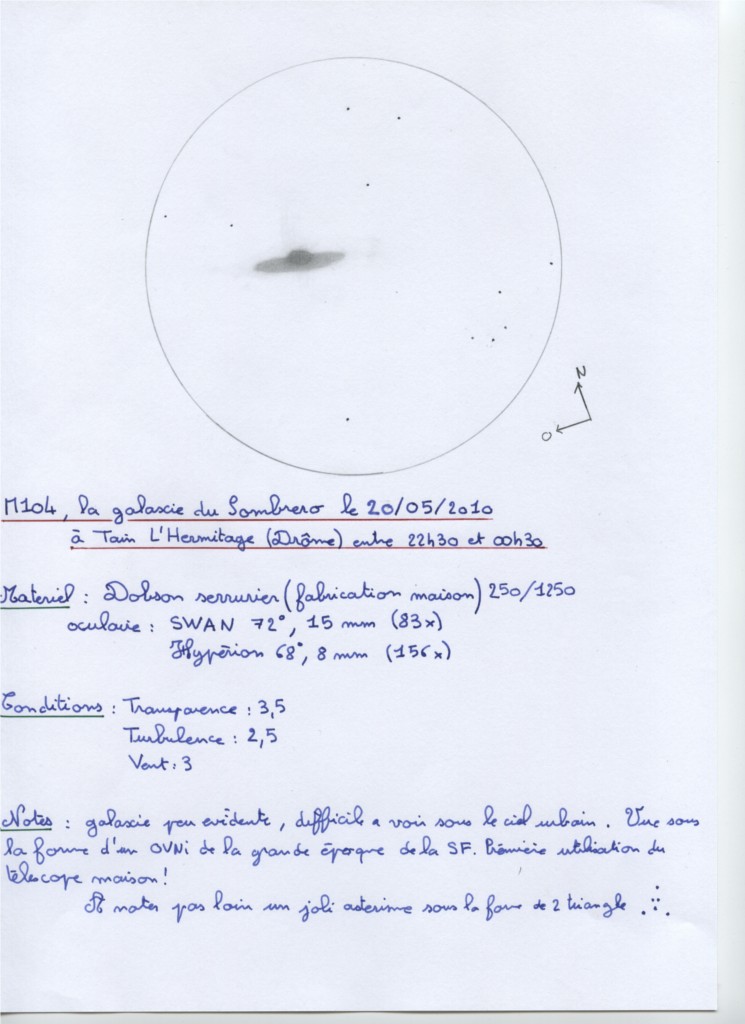 N
O
M104, la galaxie du Sombrero le 20/05/2010
à Tain L'Hermitage (Drôme) entre 22h30 et 00h30
Materiel : Dobson serrurier (fabrication maison) 250/1250
oculaire : SWAN 72°, 15 mm (83x)
Hypérion 68°, 8 mm (156x)
Conditions : Transparence : 3,5
Turbulence : 2,5
Vent : 3
Notes : galaxie peu evidente, difficile a voir sous le ciel urbain. Vue sous
la forme d'un OVNi de la grande époque de la SF. Première utilisation du
télescope maison!
A noter pas loin un joli asterime sous la forme de 2 triangle